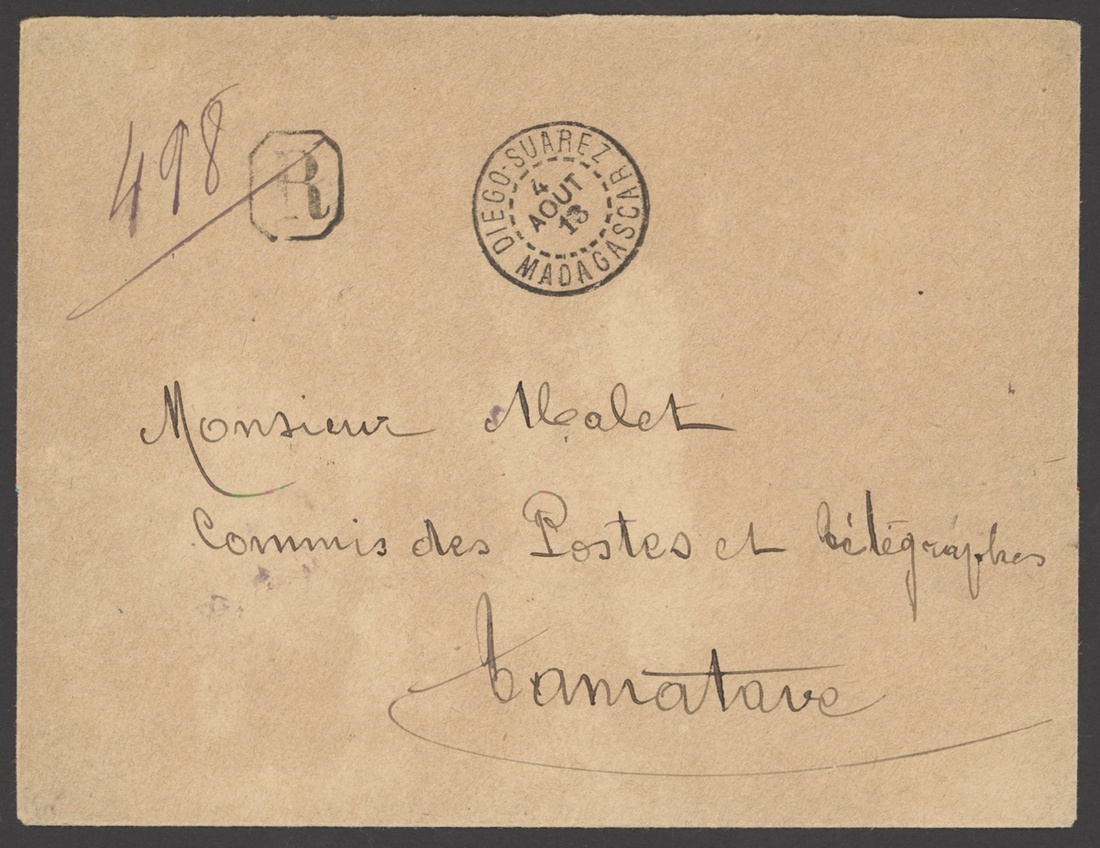 498
R
DIEGO-SUAREZ
4
AOUT
13
MADAGASCAR
Monsieur Malet
Commis des Postes et télégraphes
Tamatave